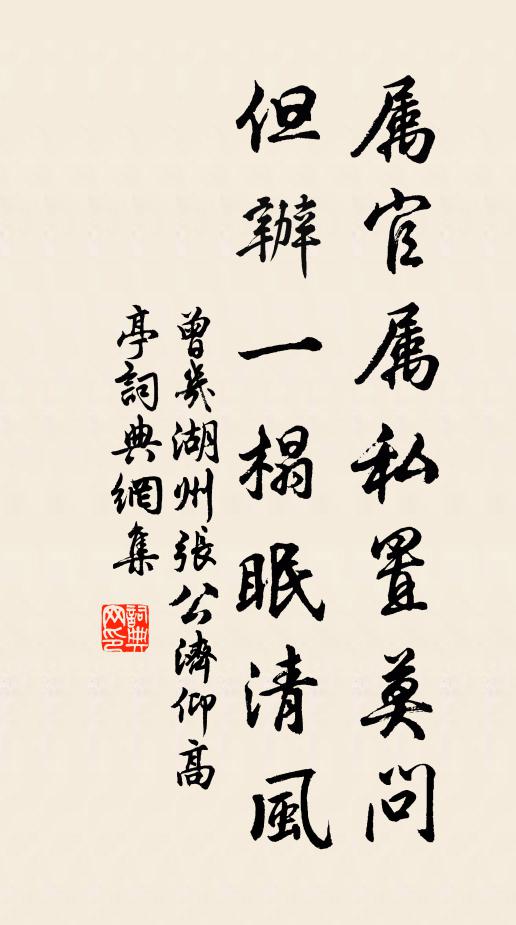 属官属私置莫问
但辦一榻眠清風
曾幾湖州張公濟仰高
亭詞典網集
詞典
网印